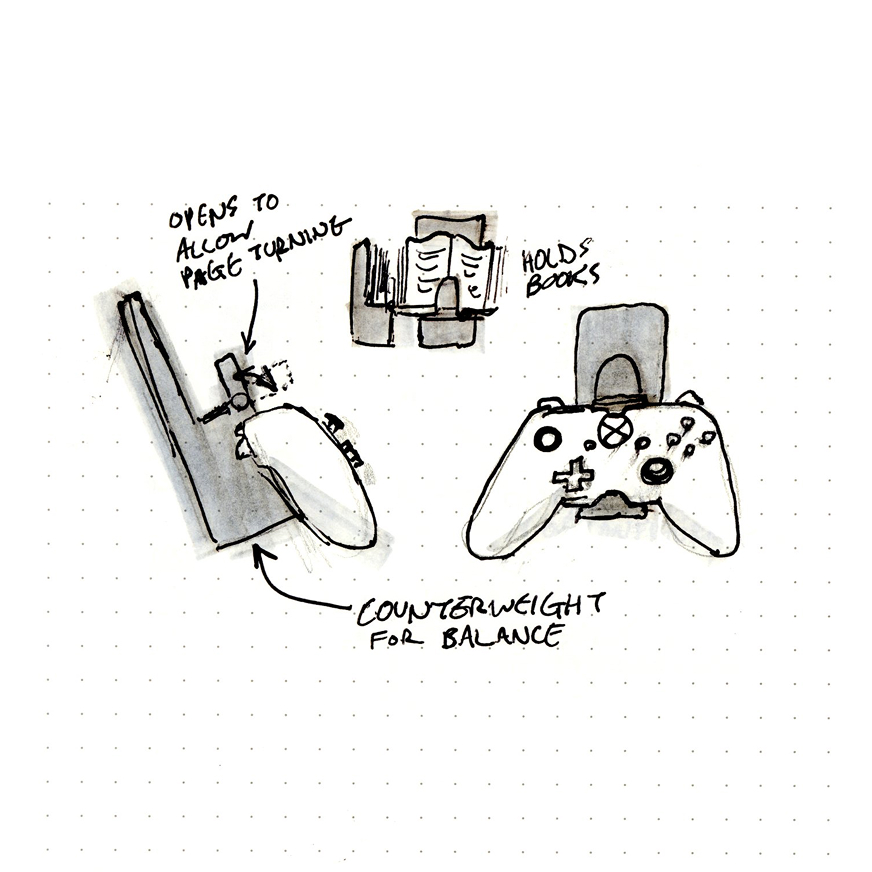 OPENS TO
ALLOW
PAGE TURNING
HOLDS
BOOKS
COUNTERWEIGHT
FOR BALANCE